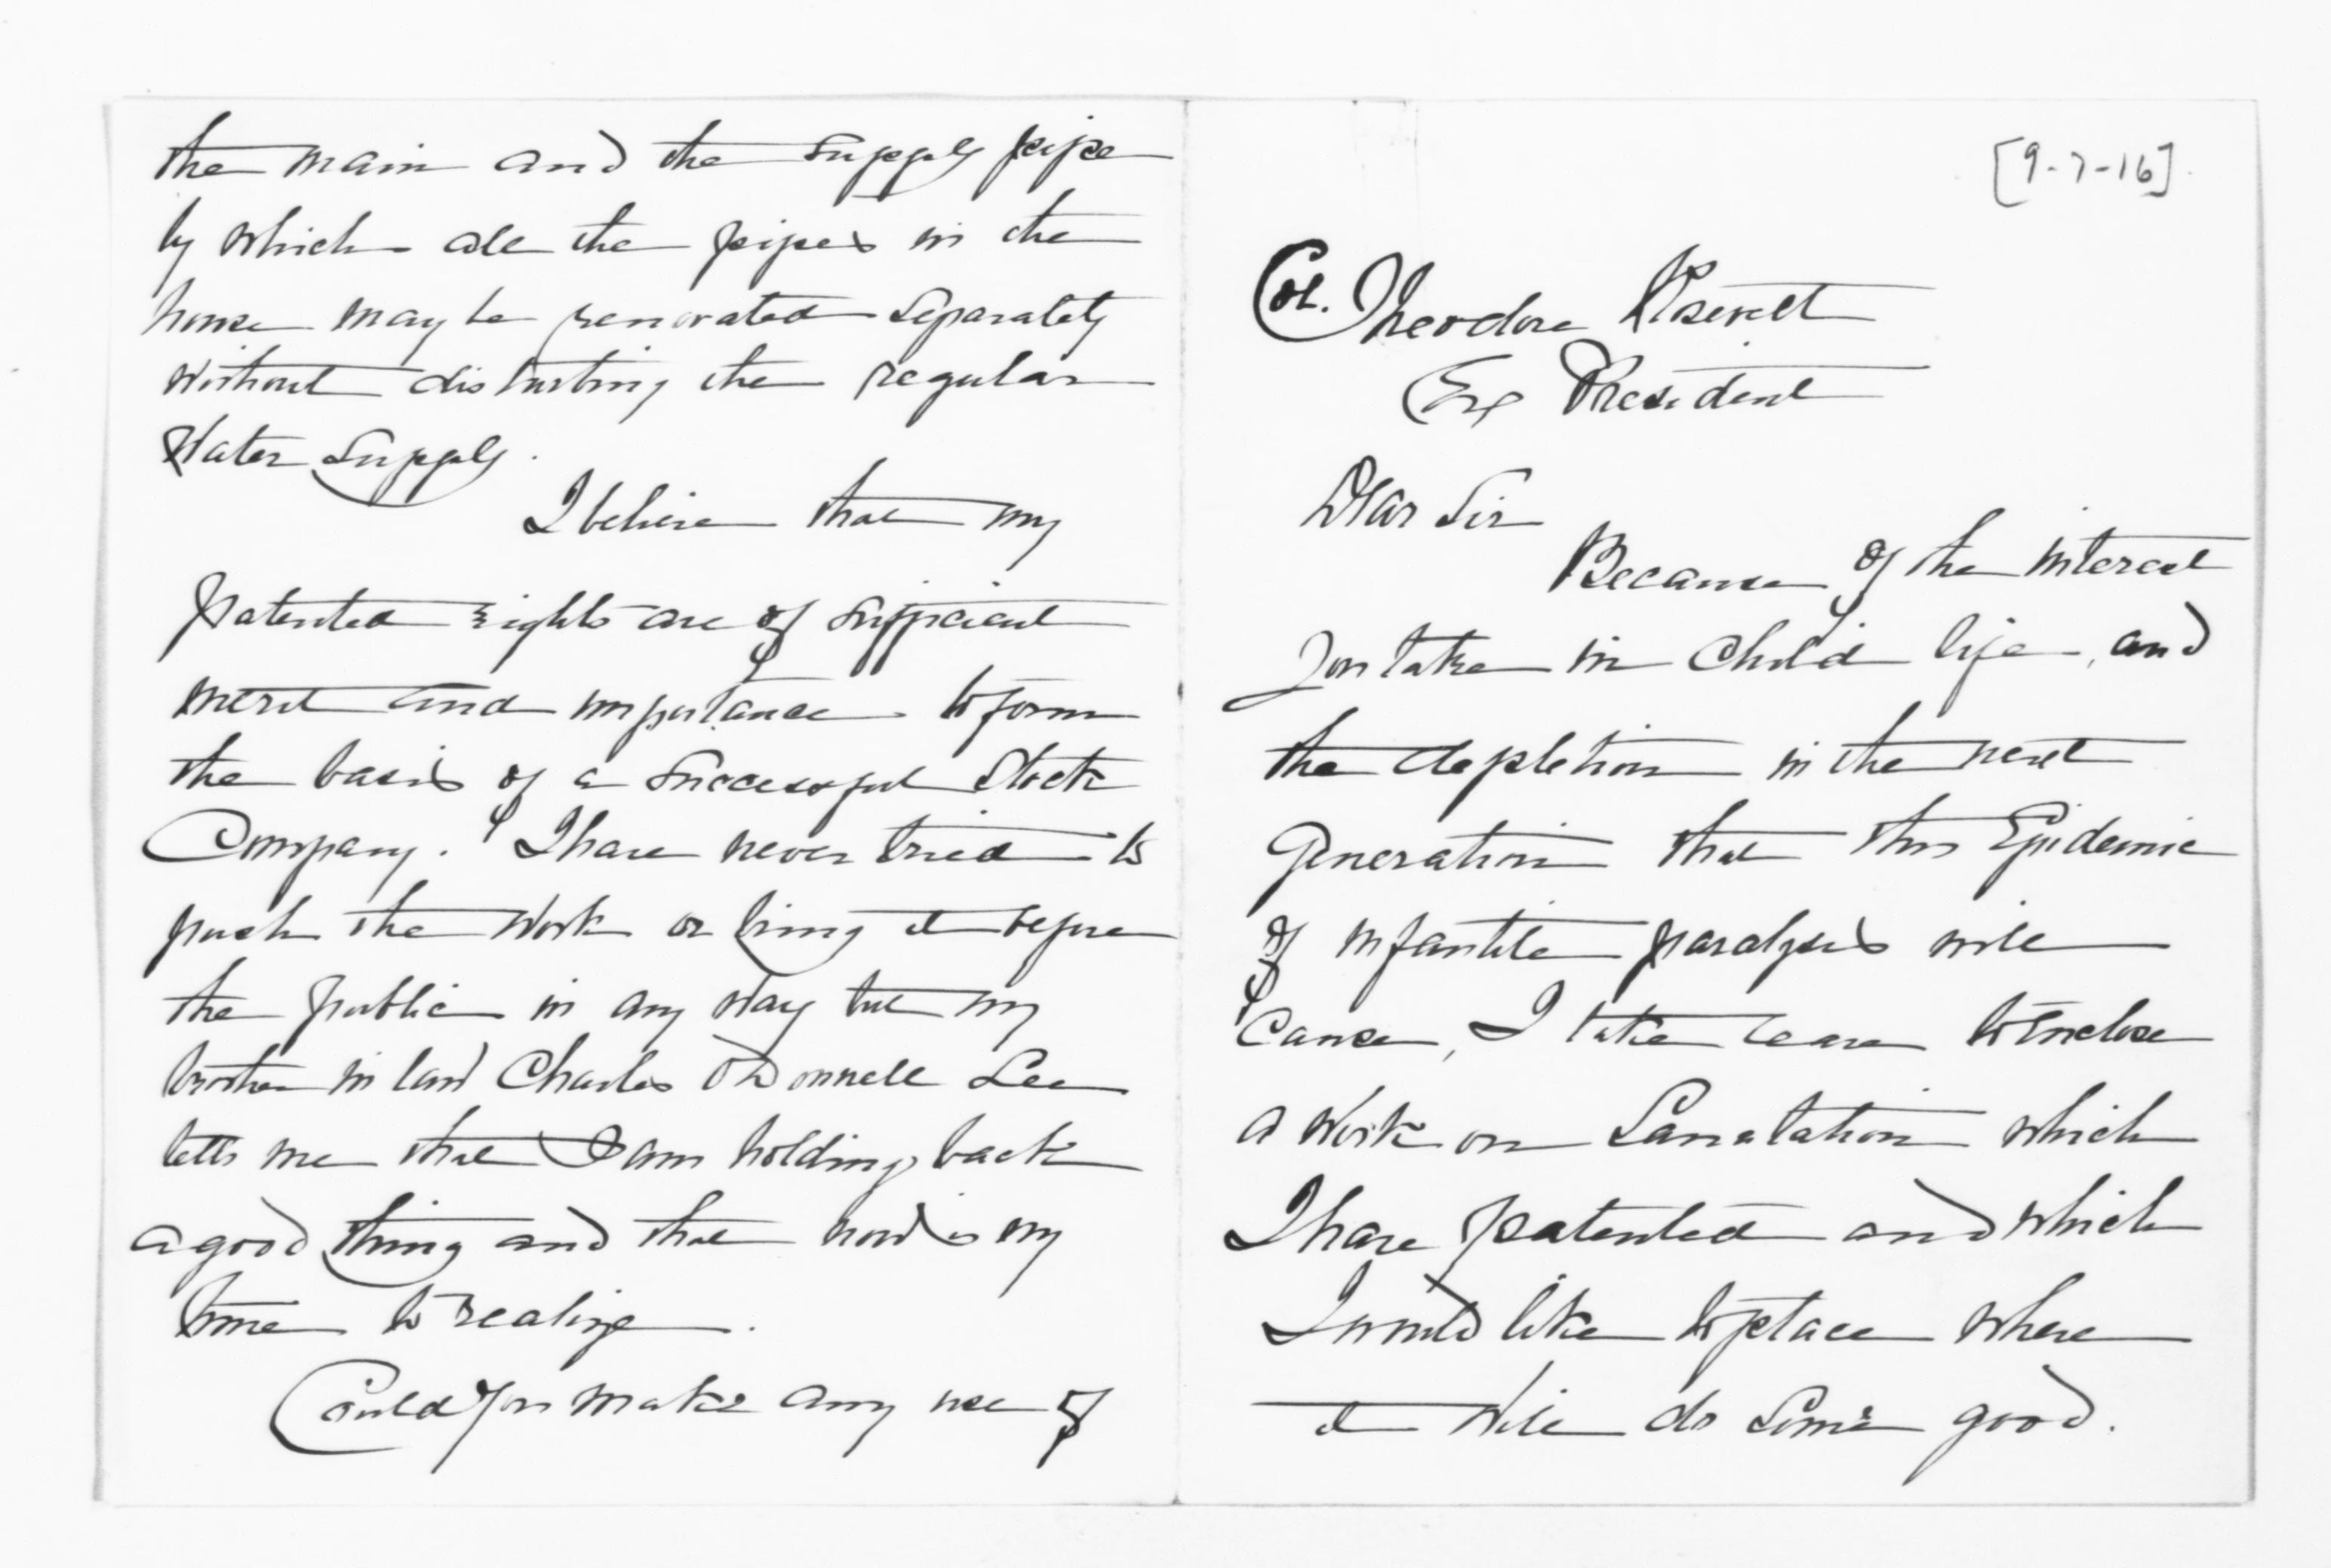 the main and the supply pipe
by which all the pipes in the
house may be renovated separately
without disturbing the regular
Water Supply.
I believe that my
patented rights are of sufficient
merit and importance to form
the basis of a successful Stock
Company. I have never tried to
push the work or bring it before
the public in any way but my
brother in law Charles O'Donnell Lee
tells me that I am holding back
a good thing and that now is my
time to realize.
Could you make any use of
[9-7-16].
Col. Theodore Rosevelt
Ex President
Dear Sir
Because of the interest
you take in Child life, and
the depletion in the next
Generation that this Epidemic
of infantile paralysis will
Cause, I take leave to Enclose
a work on Sanatation which
I have patented and which
I would like to place where
it will do some good.